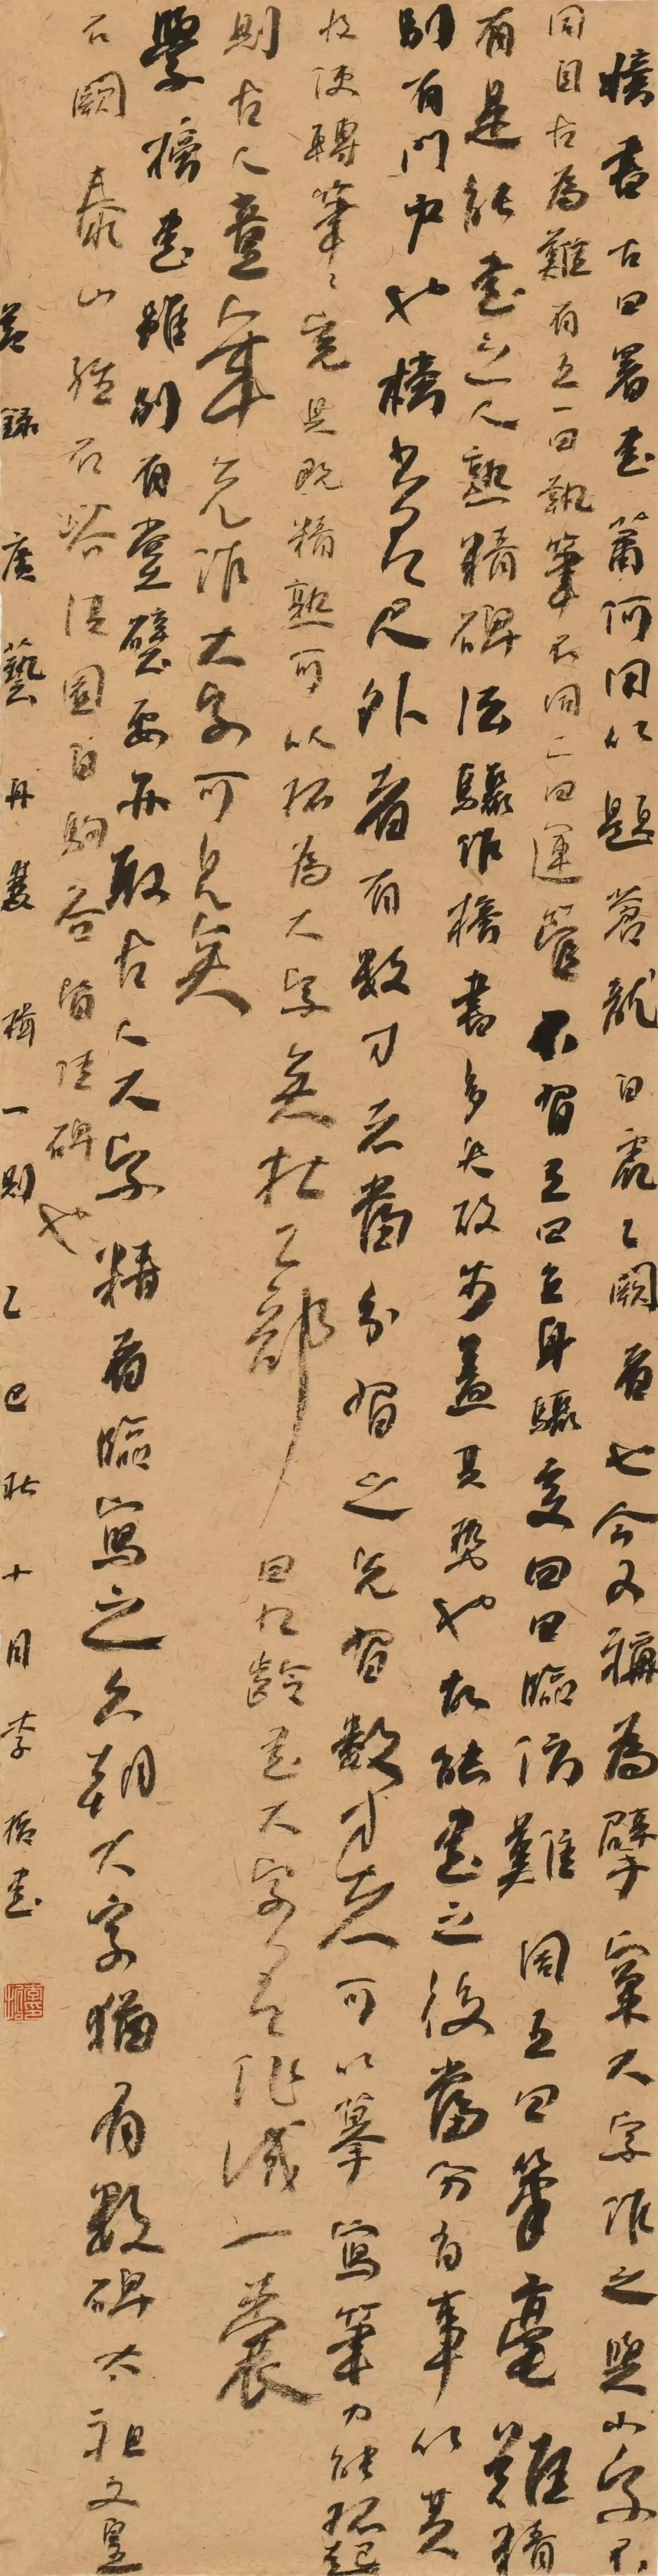 榜書古曰署書蕭何用以題蒼龍白虎之闕者也今又稱為擘窠大字作之與小字不
同自古為難有五一曰執筆不同二曰運管不習三曰立身驟變四曰臨仿難周五曰筆毫難精
有是能書之人熟精碑法驟作榜書多失故步蓋其勢也故能書之後當分有事以其
別有門戶也榜書有尺外者有數寸者當分習之先習數寸者可以摹寫筆力能拓起
收使轉筆筆完具既精熟可以拓為大字矣
則古人意筆先作大字可見矣
學榜書雖別有堂壁要亦取古人大字精者臨寫之六朝大字猶有數碑太祖文皇
石闕泰山經石峪淇園白駒谷皆佳碑也
節錄廣藝舟雙楫一則乙巳秋十月李 書